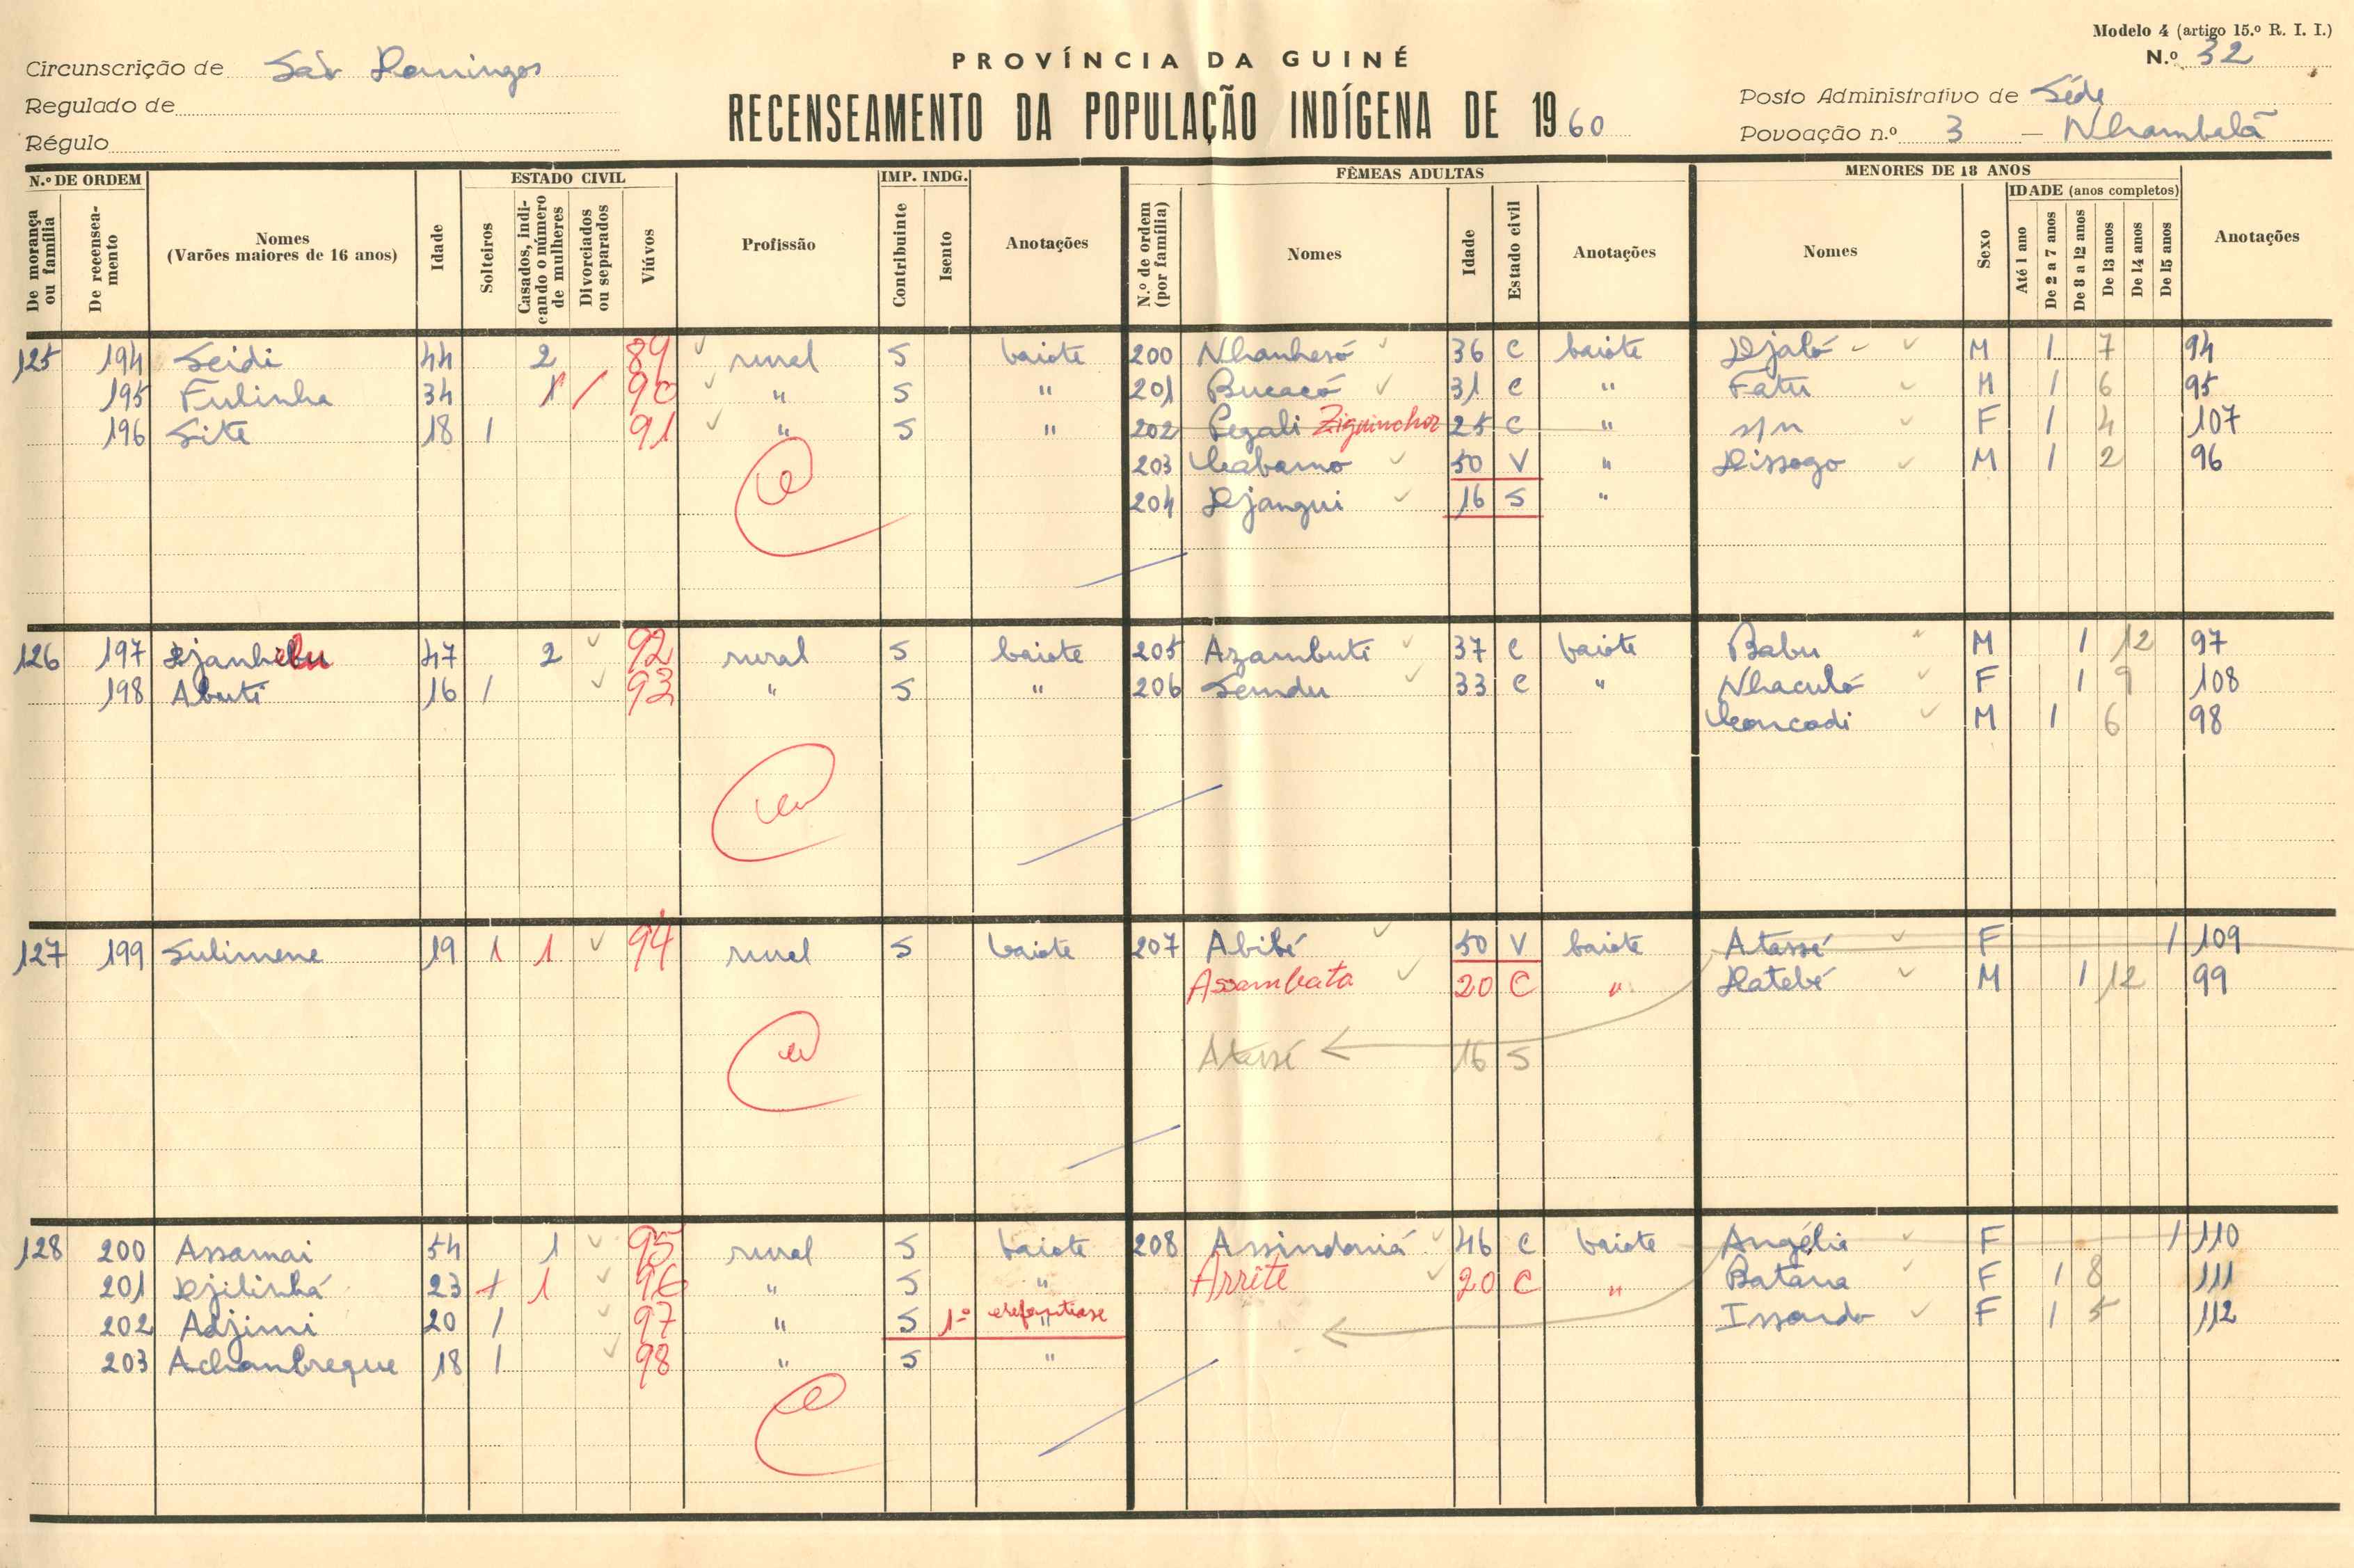 Modelo 4 (artigo 15.º R. I. I.)
N.º 32
PROVÍNCIA DA GUINÉ
RECENSEAMENTO DA POPULAÇÃO INDÍGENA DE 1960
Circunscrição de São Domingos
Regulado de
Régulo
Posto Administrativo de Séde
Povoação n.º 3 — Nhambalã
N.º DE ORDEM
De morança ou família
De recenseamento
Nomes
(Varões maiores de 16 anos)
Idade
ESTADO CIVIL
Solteiros
Casados, indicando o número de mulheres
Divorciados ou separados
Viúvos
Profissão
IMP. INDG.
Contribuinte
Isento
Anotações
FÊMEAS ADULTAS
N.º de ordem (por família)
Nomes
Idade
Estado civil
Anotações
MENORES DE 18 ANOS
Nomes
Sexo
IDADE (anos completos)
Até 1 ano
De 2 a 7 anos
De 8 a 12 anos
De 13 anos
De 14 anos
De 15 anos
Anotações
125 194 Seidi 44 2 89 rural S baiote 200 Nhanhesó 36 C baiote Djaló M 1 7 94
195 Fulinha 34 1 / 90 " S " 201 Bucacó 31 C " Fatu M 1 6 95
196 Site 18 1 91 " S " 202 Pegali Ziguinchor 25 C " s/n F 1 4 107
203 Cabamo 50 V " Dissogo M 1 2 96
204 Djangui 16 S "
126 197 Djanhebu 47 2 92 rural S baiote 205 Azambuti 37 C baiote Babu M 1 12 97
198 Abuti 16 1 93 " S " 206 Semdu 33 C " Nhaculó F 1 9 108
Concodi M 1 6 98
127 199 Sulimene 19 1 1 94 rural S baiote 207 Abibé 50 V baiote Atessé F 1 109
Assambata 20 C " Datebé M 1 12 99
Atessé 16 S
128 200 Assamai 54 1 95 rural S baiote 208 Assindaniá 46 C baiote Angélia F 1 110
201 Djilinhá 23 1 96 " S " Arrête 20 C " Batana F 1 8 111
202 Adjimi 20 1 97 " S 1º elefantiase " Issando F 1 5 112
203 Achambreque 18 1 98 " S "